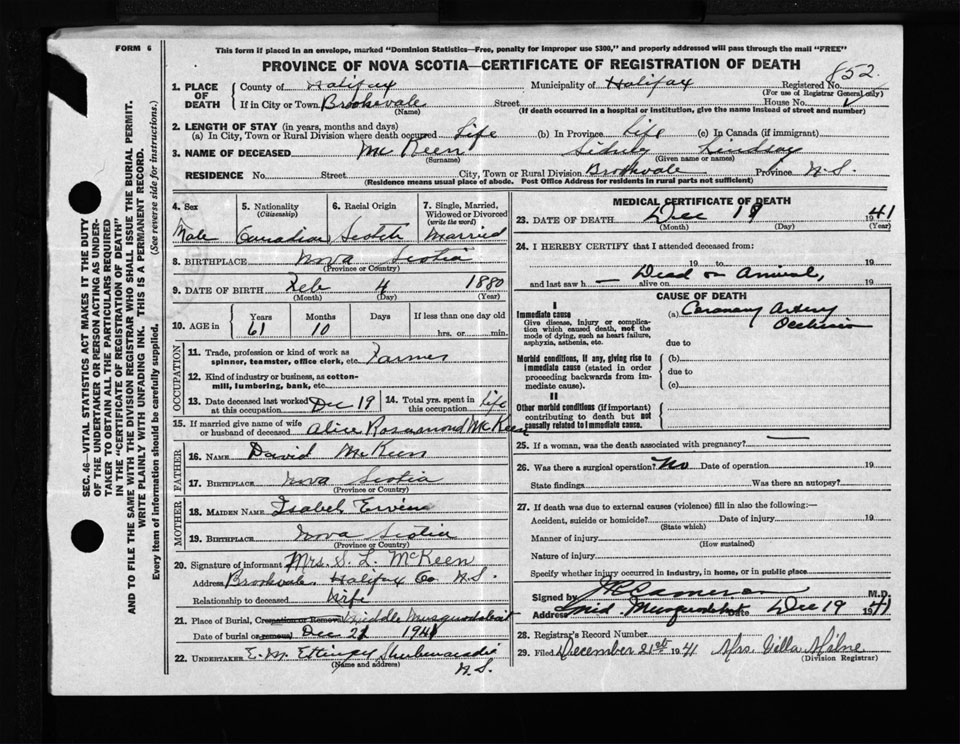 FORM 6
This form if placed in an envelope, marked "Dominion Statistics—Free, penalty for improper use $300," and properly addressed will pass through the mail "FREE"
PROVINCE OF NOVA SCOTIA—CERTIFICATE OF REGISTRATION OF DEATH
SEC. 46—VITAL STATISTICS ACT MAKES IT THE DUTY
OF THE UNDERTAKER OR PERSON ACTING AS UNDER-
TAKER TO OBTAIN ALL THE PARTICULARS REQUIRED
IN THE "CERTIFICATE OF REGISTRATION OF DEATH"
AND TO FILE THE SAME WITH THE DIVISION REGISTRAR WHO SHALL ISSUE THE BURIAL PERMIT.
WRITE PLAINLY WITH UNFADING INK. THIS IS A PERMANENT RECORD.
Every item of information should be carefully supplied. (See reverse side for instructions.)
1. PLACE OF DEATH County of Halifax Municipality of Halifax Registered No. 852
(For use of Registrar General only)
If in City or Town Brookvale Street House No.
(Name) (If death occurred in a hospital or institution, give the name instead of street and number)
2. LENGTH OF STAY (in years, months and days)
(a) In City, Town or Rural Division where death occurred Life (b) In Province Life (c) In Canada (if immigrant)
3. NAME OF DECEASED McKeen Sidney Lindsay
(Surname) (Given name or names)
RESIDENCE No. Street City, Town or Rural Division Brookvale Province N.S.
(Residence means usual place of abode. Post Office Address for residents in rural parts not sufficient)
4. Sex 5. Nationality (Citizenship) 6. Racial Origin 7. Single, Married, Widowed or Divorced (write the word)
Male Canadian Scotch Married
8. BIRTHPLACE Nova Scotia
(Province or Country)
9. DATE OF BIRTH Feb 4 1880
(Month) (Day) (Year)
10. AGE in Years Months Days If less than one day old
61 10 hrs. or min.
OCCUPATION
11. Trade, profession or kind of work as
spinner, teamster, office clerk, etc. Farmer
12. Kind of industry or business, as cotton-
mill, lumbering, bank, etc.
13. Date deceased last worked at this occupation Dec 19 14. Total yrs. spent in this occupation life
15. If married give name of wife
or husband of deceased Alice Rosamond McKeen
FATHER
16. NAME David McKeen
17. BIRTHPLACE Nova Scotia
(Province or Country)
MOTHER
18. MAIDEN NAME Isabel
19. BIRTHPLACE Nova Scotia
(Province or Country)
20. Signature of informant Mrs. S. L. McKeen
Address Brookvale Halifax Co N.S.
Relationship to deceased Wife
21. Place of Burial, Cremation or Removal Middle Musquodoboit
Date of burial or removal Dec 21 1941
22. UNDERTAKER E. M. Ettinger Shubenacadie
(Name and address) N.S.
MEDICAL CERTIFICATE OF DEATH
23. DATE OF DEATH Dec 19 1941
(Month) (Day) (Year)
24. I HEREBY CERTIFY that I attended deceased from:
19 to 19
and last saw h — alive on Dead on Arrival, 19
CAUSE OF DEATH
I
Immediate cause (a) Coronary Artery Occlusion
Give disease, injury or complica-
tion which caused death, not the
mode of dying, such as heart failure,
asphyxia, asthenia, etc.
due to
Morbid conditions, if any, giving rise to (b)
immediate cause (stated in order due to
proceeding backwards from im-
mediate cause). (c)
II
Other morbid conditions (if important)
contributing to death but not
causally related to immediate cause.
25. If a woman, was the death associated with pregnancy? —
26. Was there a surgical operation? No Date of operation 19
State findings Was there an autopsy?
27. If death was due to external causes (violence) fill in also the following:—
Accident, suicide or homicide? Date of injury 19
(State which)
Manner of injury
(How sustained)
Nature of injury
Specify whether injury occurred in industry, in home, or in public place
Signed by Cameron M.D.
Address Mid. Musquodoboit Dec 19 1941
28. Registrar's Record Number
29. Filed December 21st 1941 Mrs. Villa Milne
(Division Registrar)